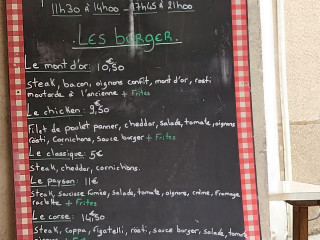 11h30 à 14h00 - 17h45 à 21h00
LES burger.
Le mont d'or: 10,50€
steak, bacon, oignons confit, mont d'or, rosti
moutarde à l'ancienne + Frites
Le chicken: 9,50€
Filet de poulet panner, cheddar, salade, tomate, oignons
rosti, Cornichons, sauce burger + Frites
Le classique: 5€
steak, cheddar, cornichons.
Le payson: 11€
steak, saucisse fumée, salade, tomate, oignons, crème, fromage
raclette + Frites
Le corse: 14,50€
steak, coppa, figatelli, rosti, sauce burger, salade, tomate